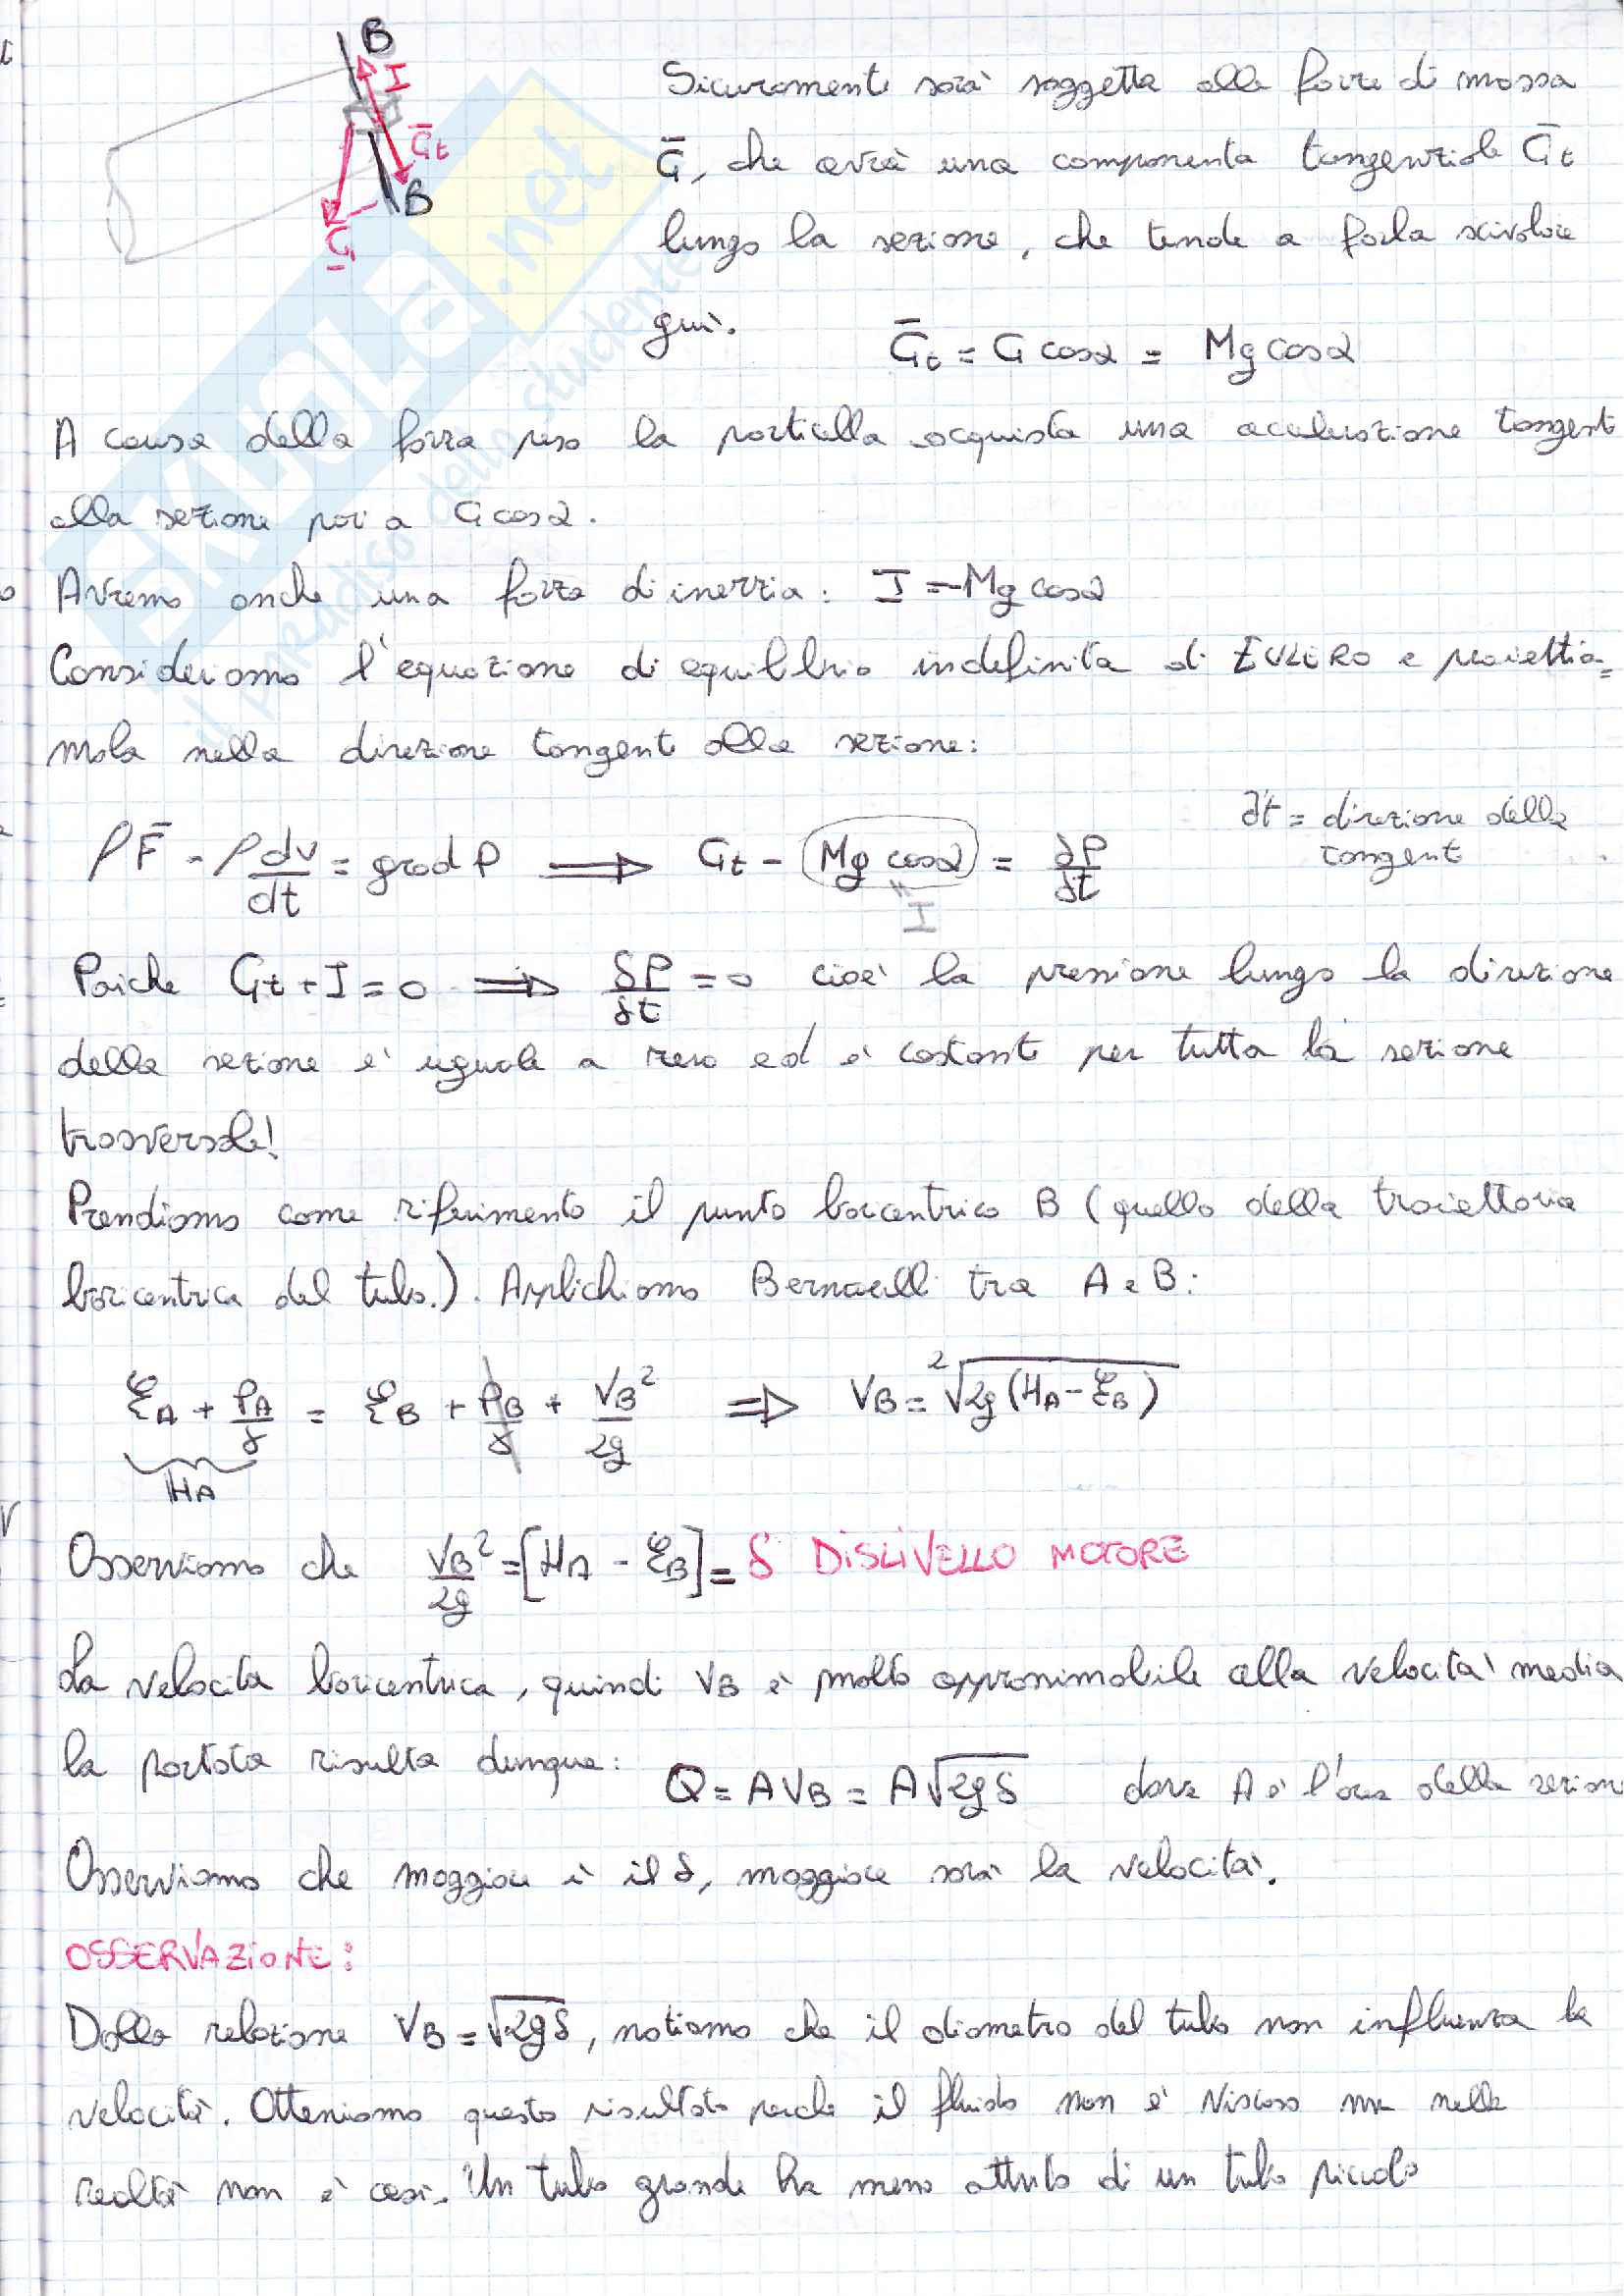 B
I
Ḡt
B
G
Sicuramente sarà soggetta alle forze di massa
Ḡ, che avrà una componente tangenziale Ḡt
lungo la sezione, che tende a farla scivolare
giù.
Ḡt = G cosα = Mg cosα
A causa della forza peso la particella acquista una accelerazione tangente
alla sezione pari a G cosα.
Avremo anche una forza di inerzia: I = -Mg cosα
Consideriamo l'equazione di equilibrio indefinita di EULERO e proiettia=
mola nella direzione tangente alla sezione:
ρF̄ - ρ dv/dt = grad P ⟹ Gt - Mg cosα = ∂P/∂t
" I
∂t = direzione della
tangente
Poiche Gt + I = 0 ⟹ δP/δt = 0 cioè la pressione lungo la direzione
della sezione è uguale a zero ed è costante per tutta la sezione
trasversale!
Prendiamo come riferimento il punto baricentrico B (quello della traiettoria
baricentrica del tubo.). Applichiamo Bernoulli tra A e B:
ξA + PA/γ = ξB + PB/γ + VB²/2g ⟹ VB = ²√2g(HA - ξB)
HA
Osserviamo che VB²/2g = [HA - ξB] = δ DISLIVELLO MOTORE
La velocità baricentrica, quindi VB è molto approssimabile alla velocita' media
la portata risulta dunque: Q = AVB = A√2gδ dove A è l'area della sezione
Osserviamo che maggiore è il δ, maggiore sarà la velocità.
OSSERVAZIONE:
Dalla relazione VB = √2gδ, notiamo che il diametro del tubo non influenza la
velocità. Otteniamo questo risultato perche il fluido non è viscoso ma nella
realtà non è così. Un tubo grande ha meno attrito di un tubo piccolo
SKUOLA.net
il paradiso dello studente